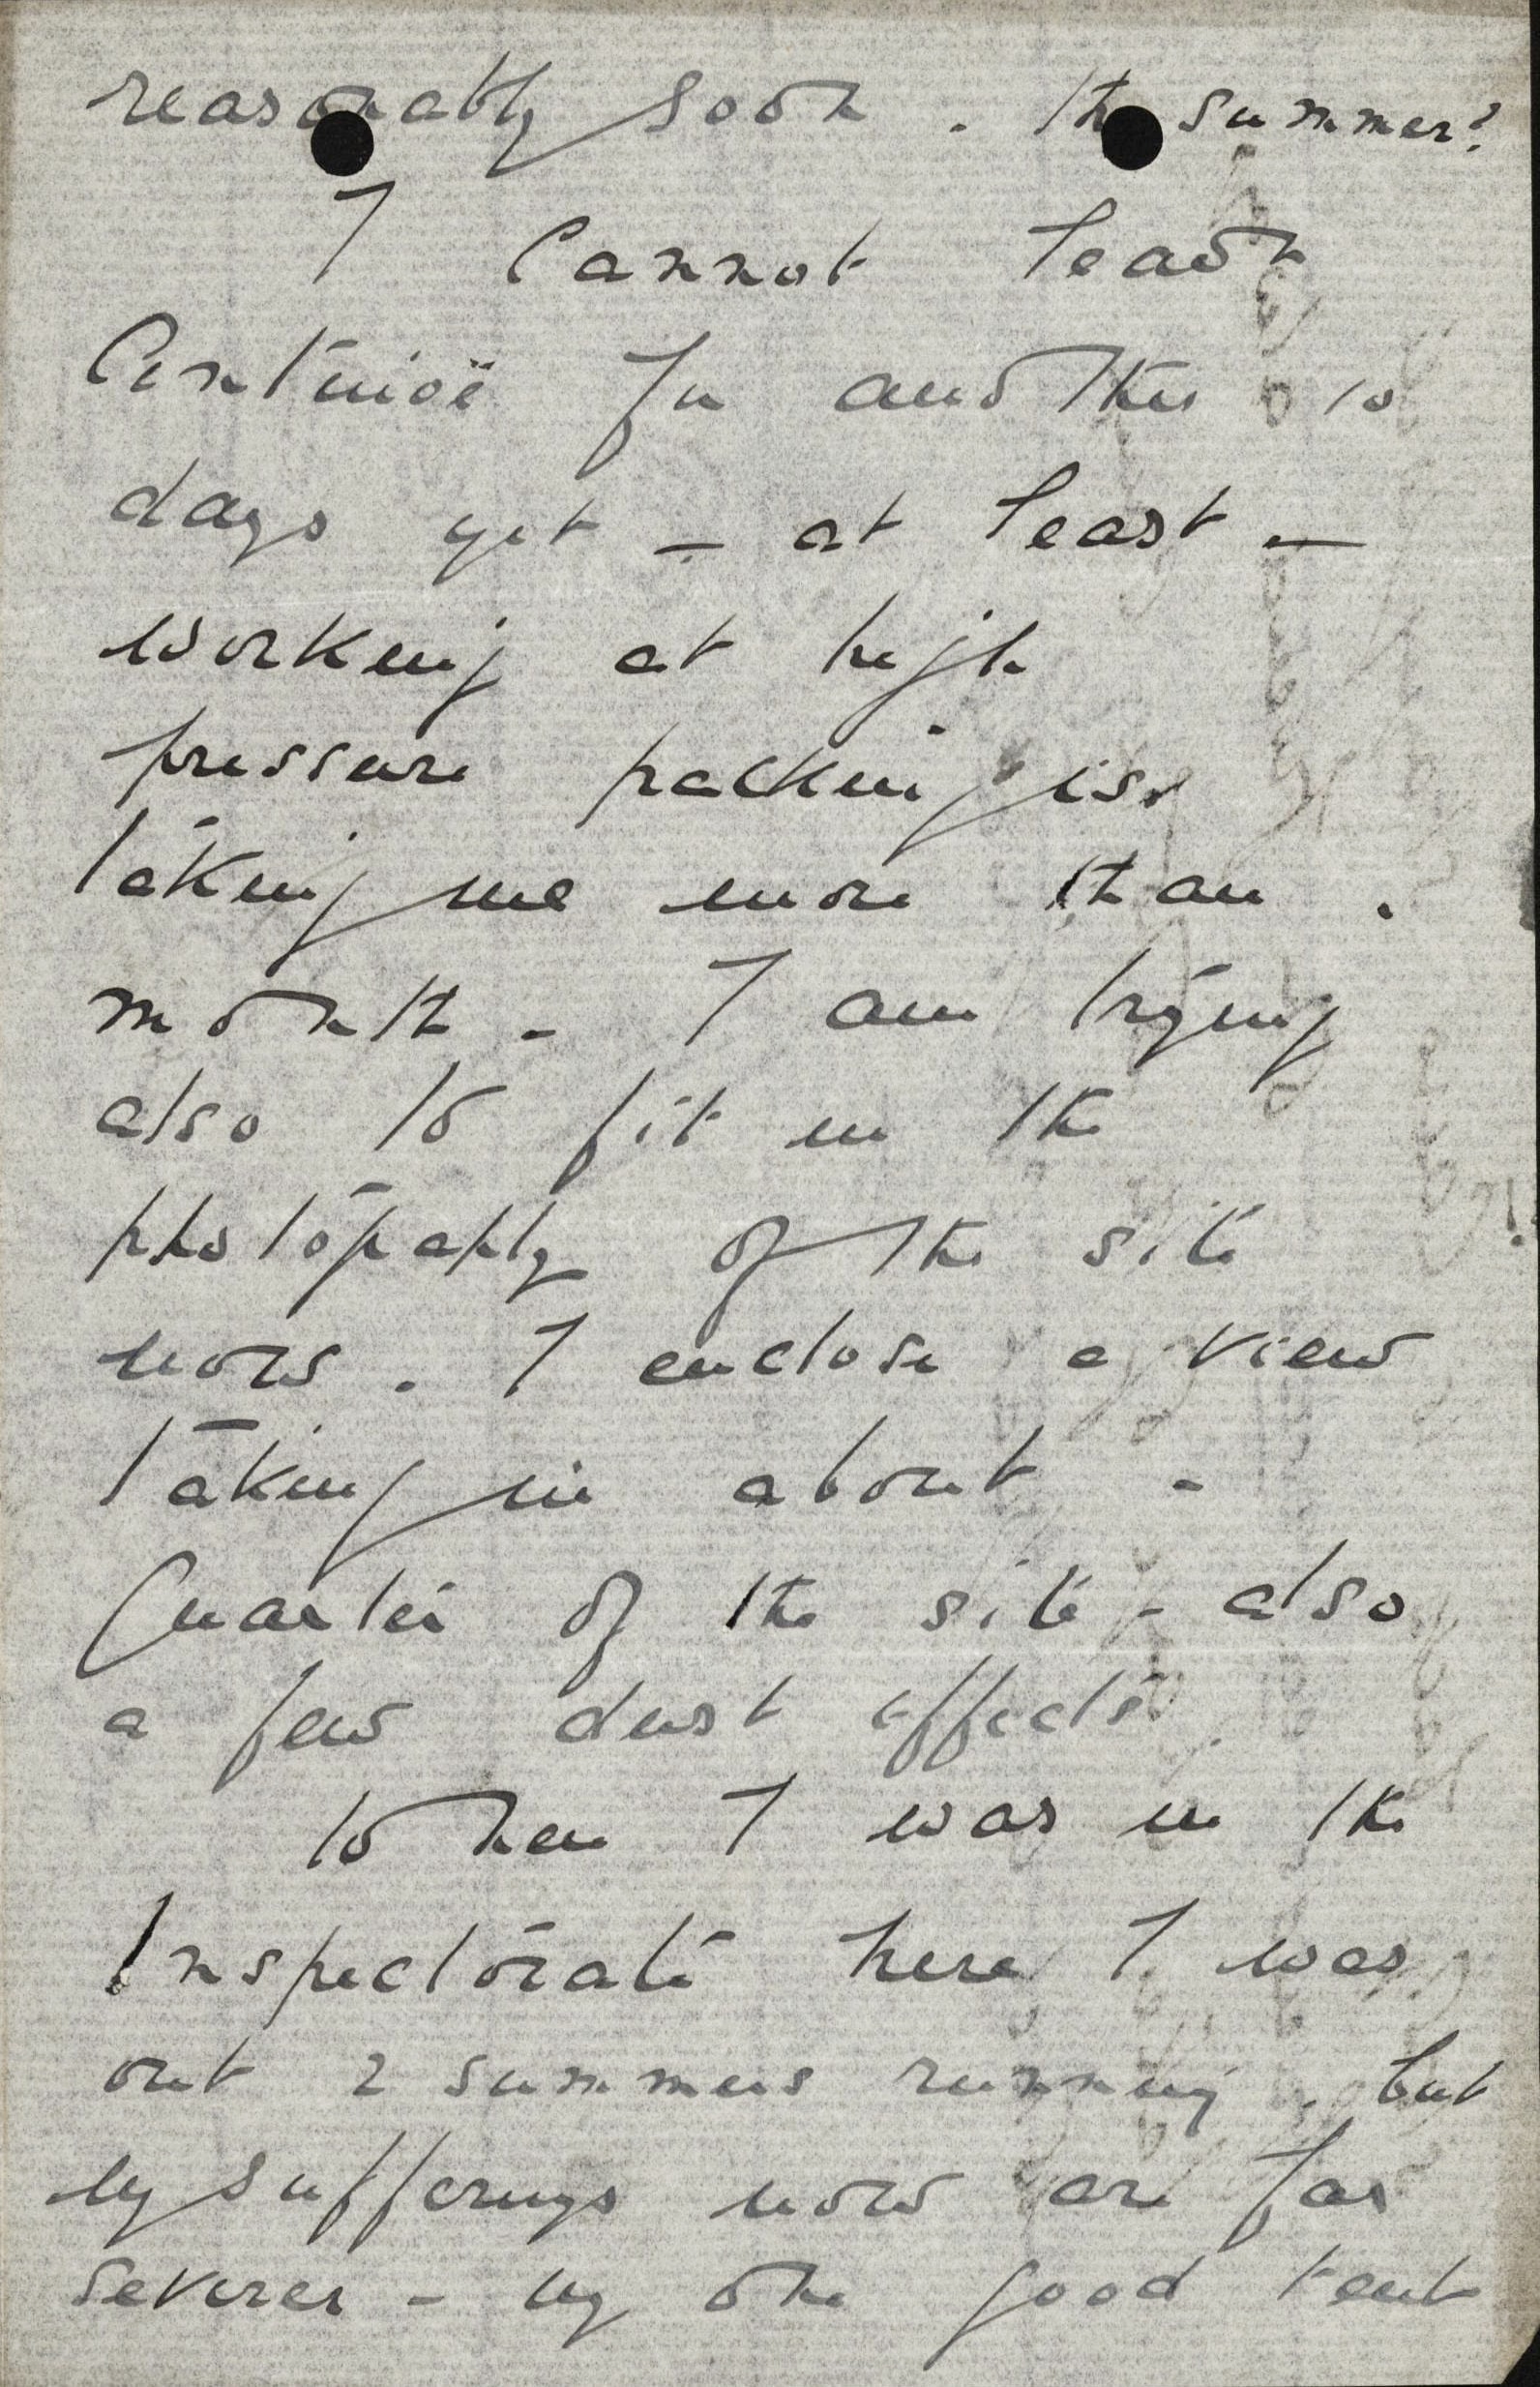 reasonably soon. The summer?
I cannot leave
Amarna for another 10
days yet – at least –
working at high
pressure packing is
taking me more than a
month – I am trying
also to fit in the
photography of the site
now. I enclose a view
taking in about a
Quarter of the site – also
a few dust effects.
When I was in the
Inspectorate here I was
out 2 summers running, but
my sufferings now are far
severer – my one good tent